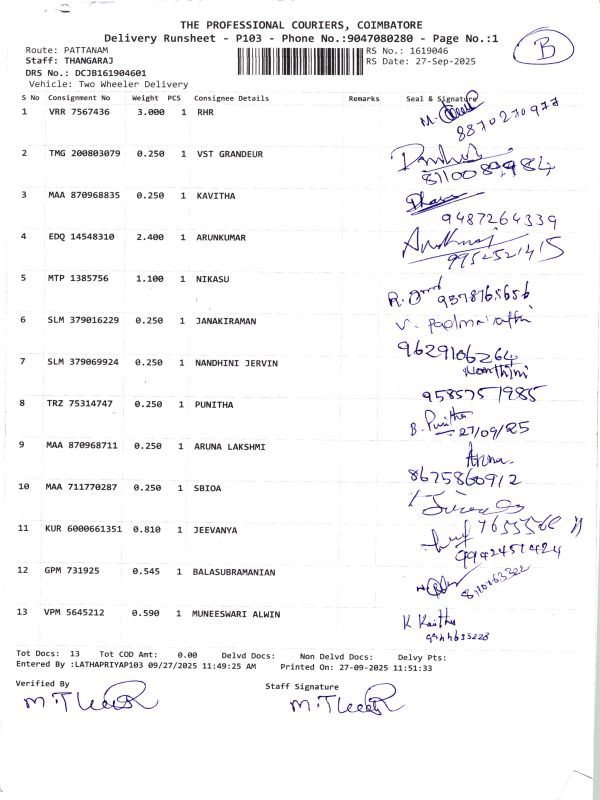 THE PROFESSIONAL COURIERS, COIMBATORE
Delivery Runsheet - P103 - Phone No.:9047080280 - Page No.:1
B
Route: PATTANAM
RS No.: 1619046
Staff: THANGARAJ
RS Date: 27-Sep-2025
DRS No.: DCJB161904601
Vehicle: Two Wheeler Delivery
S No Consignment No Weight PCS Consignee Details Remarks Seal & Signature
1 VRR 7567436 3.000 1 RHR
8870270977
2 TMG 200803079 0.250 1 VST GRANDEUR
3 MAA 870968835 0.250 1 KAVITHA
9487264339
4 EDQ 14548310 2.400 1 ARUNKUMAR
9952521415
5 MTP 1385756 1.100 1 NIKASU
9578765656
6 SLM 379016229 0.250 1 JANAKIRAMAN
9629106264
7 SLM 379069924 0.250 1 NANDHINI JERVIN
Nanthini
9585751985
8 TRZ 75314747 0.250 1 PUNITHA
B. Punitha
27/09/25
9 MAA 870968711 0.250 1 ARUNA LAKSHMI
Aruna.
8675860912
10 MAA 711770287 0.250 1 SBIOA
11 KUR 6000661351 0.810 1 JEEVANYA
9942451424
12 GPM 731925 0.545 1 BALASUBRAMANIAN
13 VPM 5645212 0.590 1 MUNEESWARI ALWIN
Tot Docs: 13 Tot COD Amt: 0.00 Delvd Docs: Non Delvd Docs: Delvy Pts:
Entered By :LATHAPRIYAP103 09/27/2025 11:49:25 AM Printed On: 27-09-2025 11:51:33
Verified By
Staff Signature